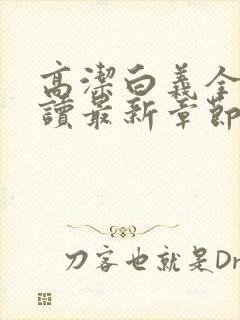 高潔白義全
讀最新章節
刀客也就是Dr